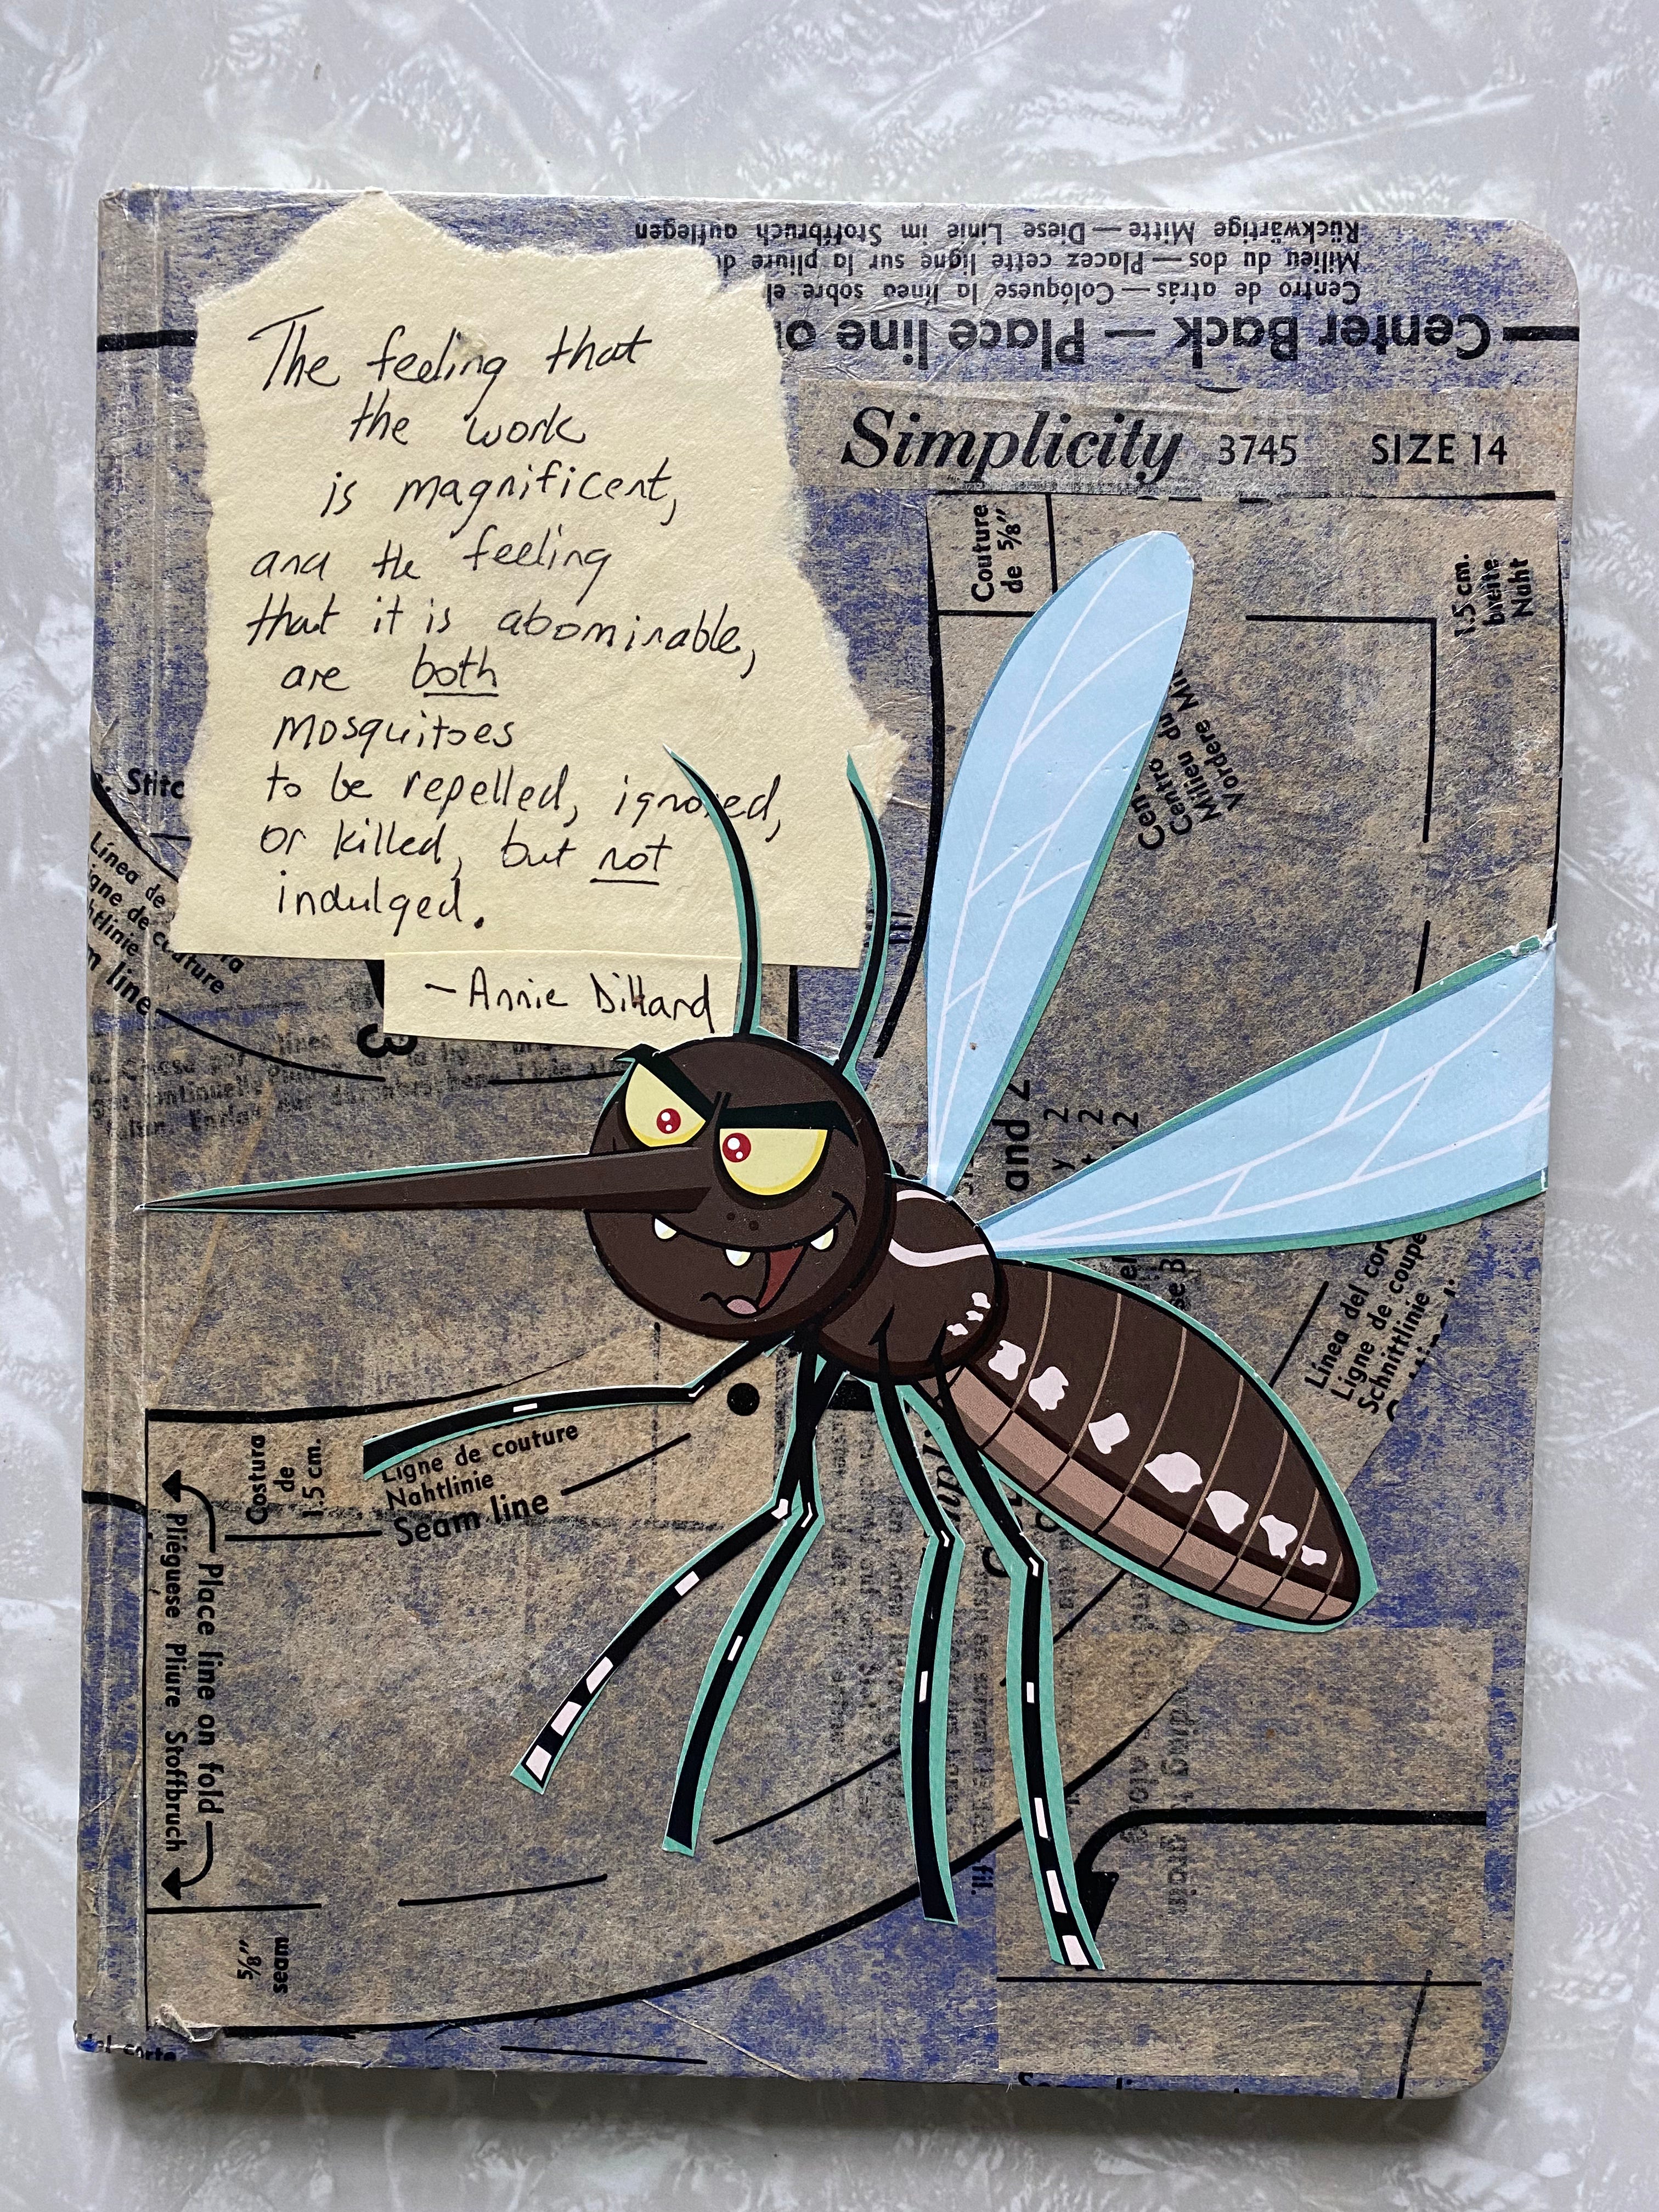 Rückwärtige Mitte — Diese Linie im Stoffbruch auflegen
Milieu du dos — Placez cette ligne sur la pliure
Centro de atrás — Colóquese la línea sobre el
Center Back — Place line
The feeling that
the work
is magnificent,
and the feeling
that it is abominable,
are both
mosquitoes
to be repelled, ignored,
or killed, but not
indulged.
— Annie Dillard
Simplicity 3745 SIZE 14
Couture
de 5/8"
1.5 cm.
breite
Naht
Centro
Milieu du
Vordere
Línea de
ligne de couture
Nahtlinie
line
3
and 2
y 2
+ 2
2
Línea del
Ligne de coupe
Schnittlinie
Costura
de
1.5 cm.
Ligne de couture
Nahtlinie
Seam line
Place line on fold
Pliéguese Pliure Stoffbruch
5/8"
seam
fil.
del corte